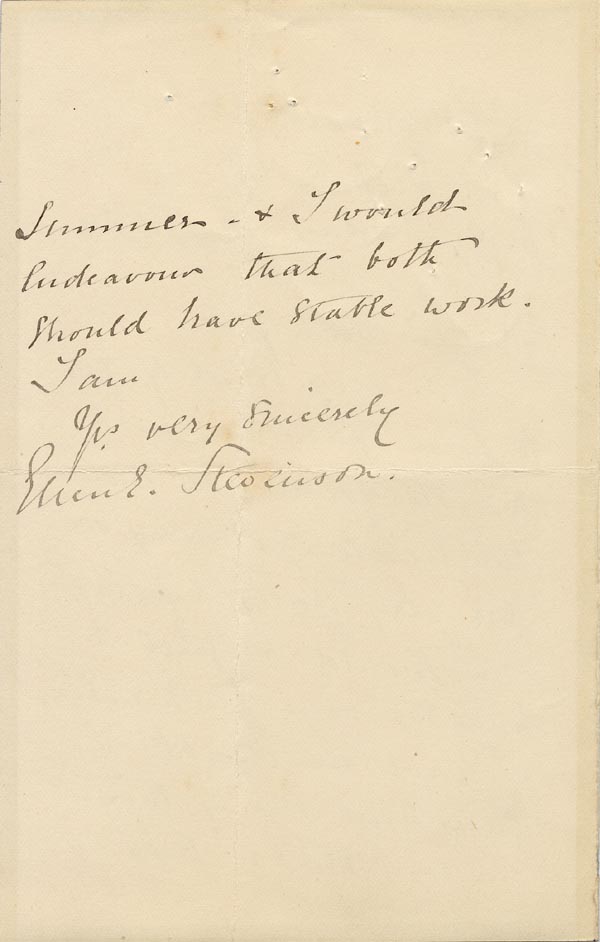 Summer - & I would
Endeavour that both
should have stable work.
I am
Yrs very sincerely
Ellen E. Stevenson.